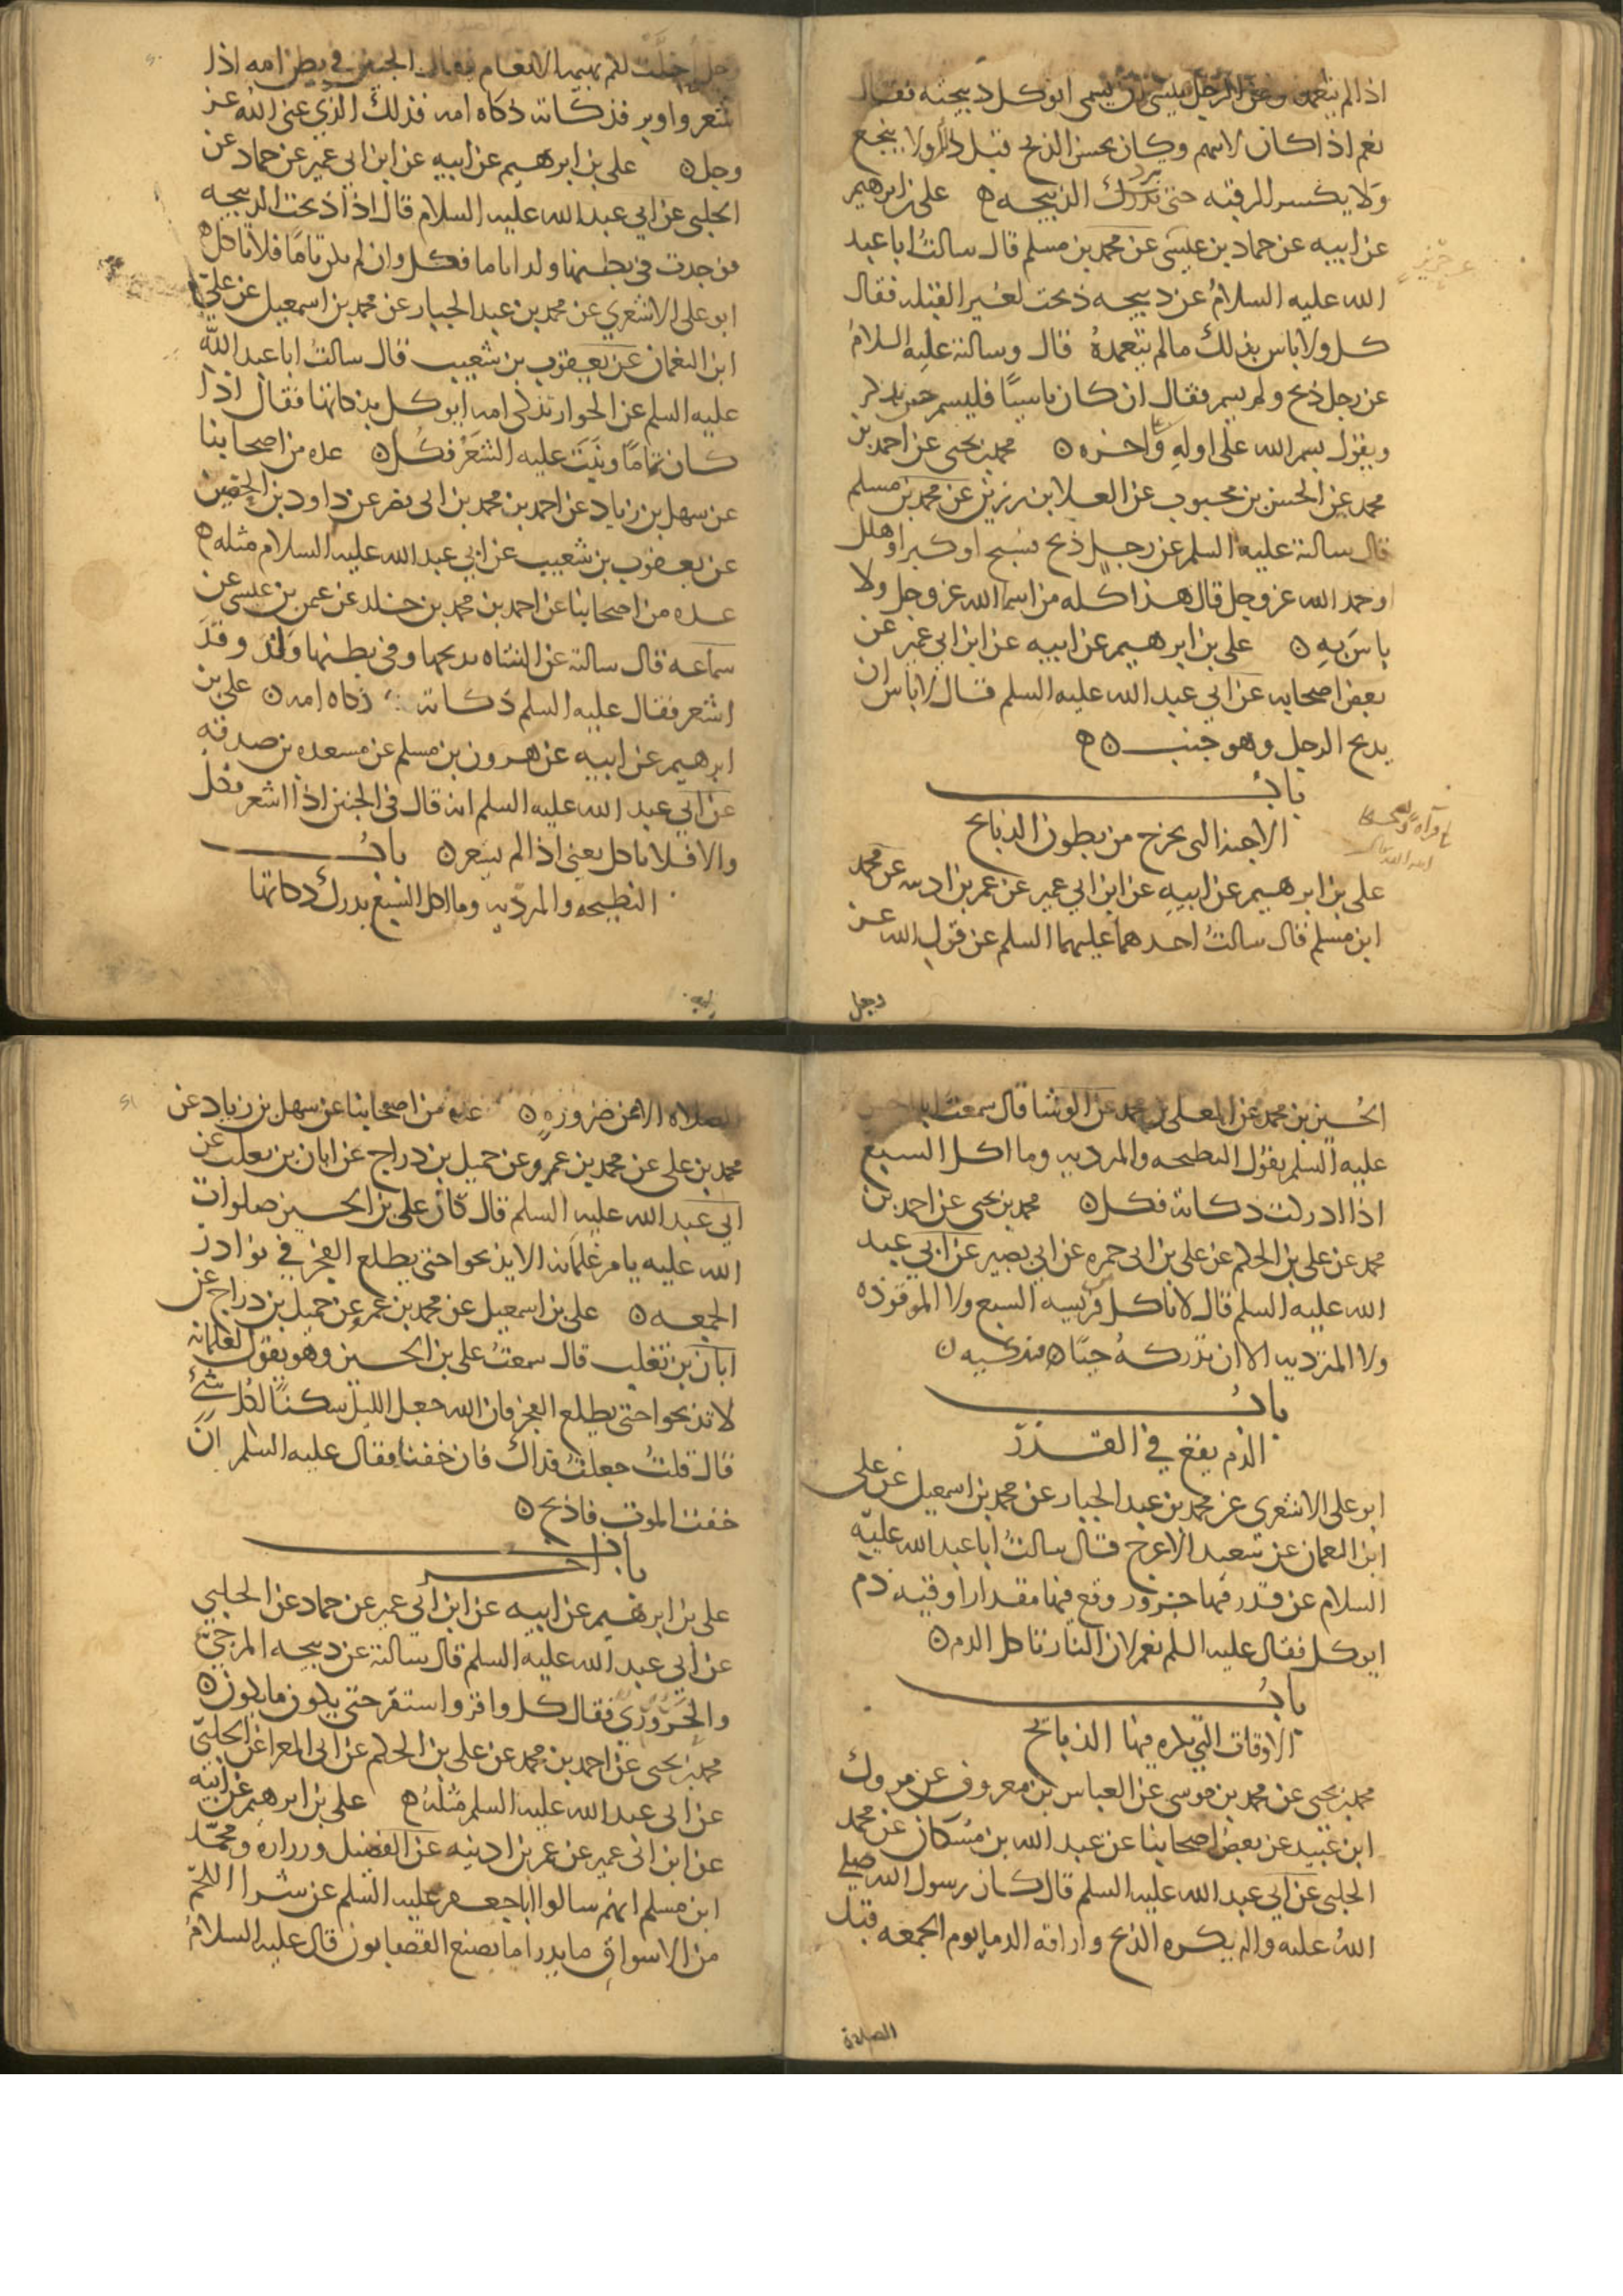 اذا لم يتعمد وعن الرجل ينسى ان يسمى ايوكل ذبيحته فقال
نعم اذا كان لا يتهم وكان يحسن الذبح قبل ذلك ولا ينخع
ولا يكسر الرقبه حتى تبرد الذبيحه ه علي بن ابرهيم
عن ابيه عن حماد بن عيسى عن محمد بن مسلم قال سالت ابا عبد
عن حريز
الله عليه السلام عن ذبيحه ذبحت لغير القبله فقال
كل ولا باس بذلك ما لم يتعمده قال وسالته عليه السلام
عن رجل ذبح ولم يسم فقال ان كان ناسيا فليسم حين يذكر
ويقول بسم الله على اوله وعلى اخره ه محمد بن يحيى عن احمد بن
محمد عن الحسن بن محبوب عن العلا بن رزين عن محمد بن مسلم
قال سالته عليه السلم عن رجل ذبح فسبح او كبر او هلل
او حمد الله عز وجل قال هذا كله من اسما الله عز وجل ولا
باس به ه علي بن ابرهيم عن ابيه عن ابن ابي عمير عن
بعض اصحابه عن ابي عبد الله عليه السلم قال لا باس ان
يذبح الرجل وهو جنب ه ه
باب
الاجنه التى تخرج من بطون الذبايح
علي بن ابرهيم عن ابيه عن ابن ابي عمير عن عمر بن اذينه عن محمد
ابن مسلم قال سالت احدهما عليهما السلم عن قول الله عز
وجل
وجل احلت لكم بهيمه الانعام فقال الجنين في بطن امه اذا
شعر واوبر فذكاته ذكاه امه فذلك الذي عنى الله عز
وجل ه علي بن ابرهيم عن ابيه عن ابن ابي عمير عن حماد عن
الحلبي عن ابي عبد الله عليه السلام قال اذا ذبحت الذبيحه
فوجدت في بطنها ولدا تاما فكل وان لم يكن تاما فلا تاكل ه
ابو علي الاشعري عن محمد بن عبد الجبار عن محمد بن اسمعيل عن علي
ابن النعمان عن يعقوب بن شعيب قال سالت ابا عبد الله
عليه السلم عن الحوار تذكى امه ايوكل بذكاتها فقال اذا
كان تماما ونبت عليه الشعر فكل ه عده من اصحابنا
عن سهل بن زياد عن احمد بن محمد بن ابى نصر عن داود بن الحصين
عن يعقوب بن شعيب عن ابي عبد الله عليه السلام مثله ه
عده من اصحابنا عن احمد بن محمد بن خالد عن عثمن بن عيسى عن
سماعه قال سالته عن الشاه يذبحها وفي بطنها ولد وقد
اشعر فقال عليه السلم ذكاته ذكاه امه ه علي بن
ابرهيم عن ابيه عن هرون بن مسلم عن مسعده بن صدقه
عن ابي عبد الله عليه السلم انه قال في الجنين اذا اشعر فكل
والا فلا تاكل يعني اذا لم يشعر ه باب
النطيحه والمترديه وما اكل السبع يدرك ذكاتها
الحسين بن محمد عن المعلى بن محمد عن الوشا قال سمعت ابا الحسن
عليه السلم يقول النطيحه والمترديه وما اكل السبع
اذا ادركت ذكاته فكل ه محمد بن يحيى عن احمد بن
محمد عن علي بن الحكم عن علي بن ابى حمزه عن ابي بصير عن ابي عبد
الله عليه السلم قال لا تاكل فريسه السبع ولا الموقوذه
ولا المترديه الا ان تدركه حيا فتذكيه ه
باب
الدم يقع في القدر
ابو علي الاشعري عن محمد بن عبد الجبار عن محمد بن اسمعيل عن علي
ابن النعمان عن سعيد الاعرج قال سالت ابا عبد الله عليه
السلام عن قدر فيها جزور وقع فيها مقدار اوقيه دم
ايوكل فقال عليه السلم نعم لان النار تاكل الدم ه
باب
الاوقات التي يكره فيها الذبايح
محمد بن يحيى عن محمد بن موسى عن العباس بن معروف عن مروك
ابن عبيد عن بعض اصحابنا عن عبد الله بن مسكان عن محمد
الحلبي عن ابي عبد الله عليه السلم قال كان رسول الله صلى
الله عليه واله يكره الذبح واراقه الدما يوم الجمعه قبل
الصلاة
الصلاه الا عن ضروره ه عده من اصحابنا عن سهل بن زياد عن
محمد بن علي عن محمد بن عمرو عن جميل بن دراج عن ابان بن تغلب عن
ابي عبد الله عليه السلم قال كان علي بن الحسين صلوات
الله عليه يامر غلمانه الا يذبحوا حتى يطلع الفجر في نوادر
الجمعه ه علي بن اسمعيل عن محمد بن عمرو عن جميل بن دراج عن
ابان بن تغلب قال سمعت علي بن الحسين وهو يقول لغلمانه
لا تذبحوا حتى يطلع الفجر فان الله جعل الليل سكنا لكل شئ
قال قلت جعلت فداك فان خفنا فقال عليه السلم ان
خفت الموت فاذبح ه
باب اخر
علي بن ابرهيم عن ابيه عن ابن ابي عمير عن حماد عن الحلبي
عن ابي عبد الله عليه السلم قال سالته عن ذبيحه المرجئ
والحروري فقال كل وقر واستقر حتى يكون ما يكون ه
محمد بن يحيى عن احمد بن محمد عن علي بن الحكم عن ابى المغرا عن الحلبي
عن ابى عبد الله عليه السلم مثله ه علي بن ابرهيم عن ابيه
عن ابن ابى عمير عن عمر بن اذينه عن الفضيل وزراره ومحمد
ابن مسلم انهم سالوا ابا جعفر عليه السلم عن شرا اللحم
من الاسواق ما يدرا ما يصنع القصابون قال عليه السلام